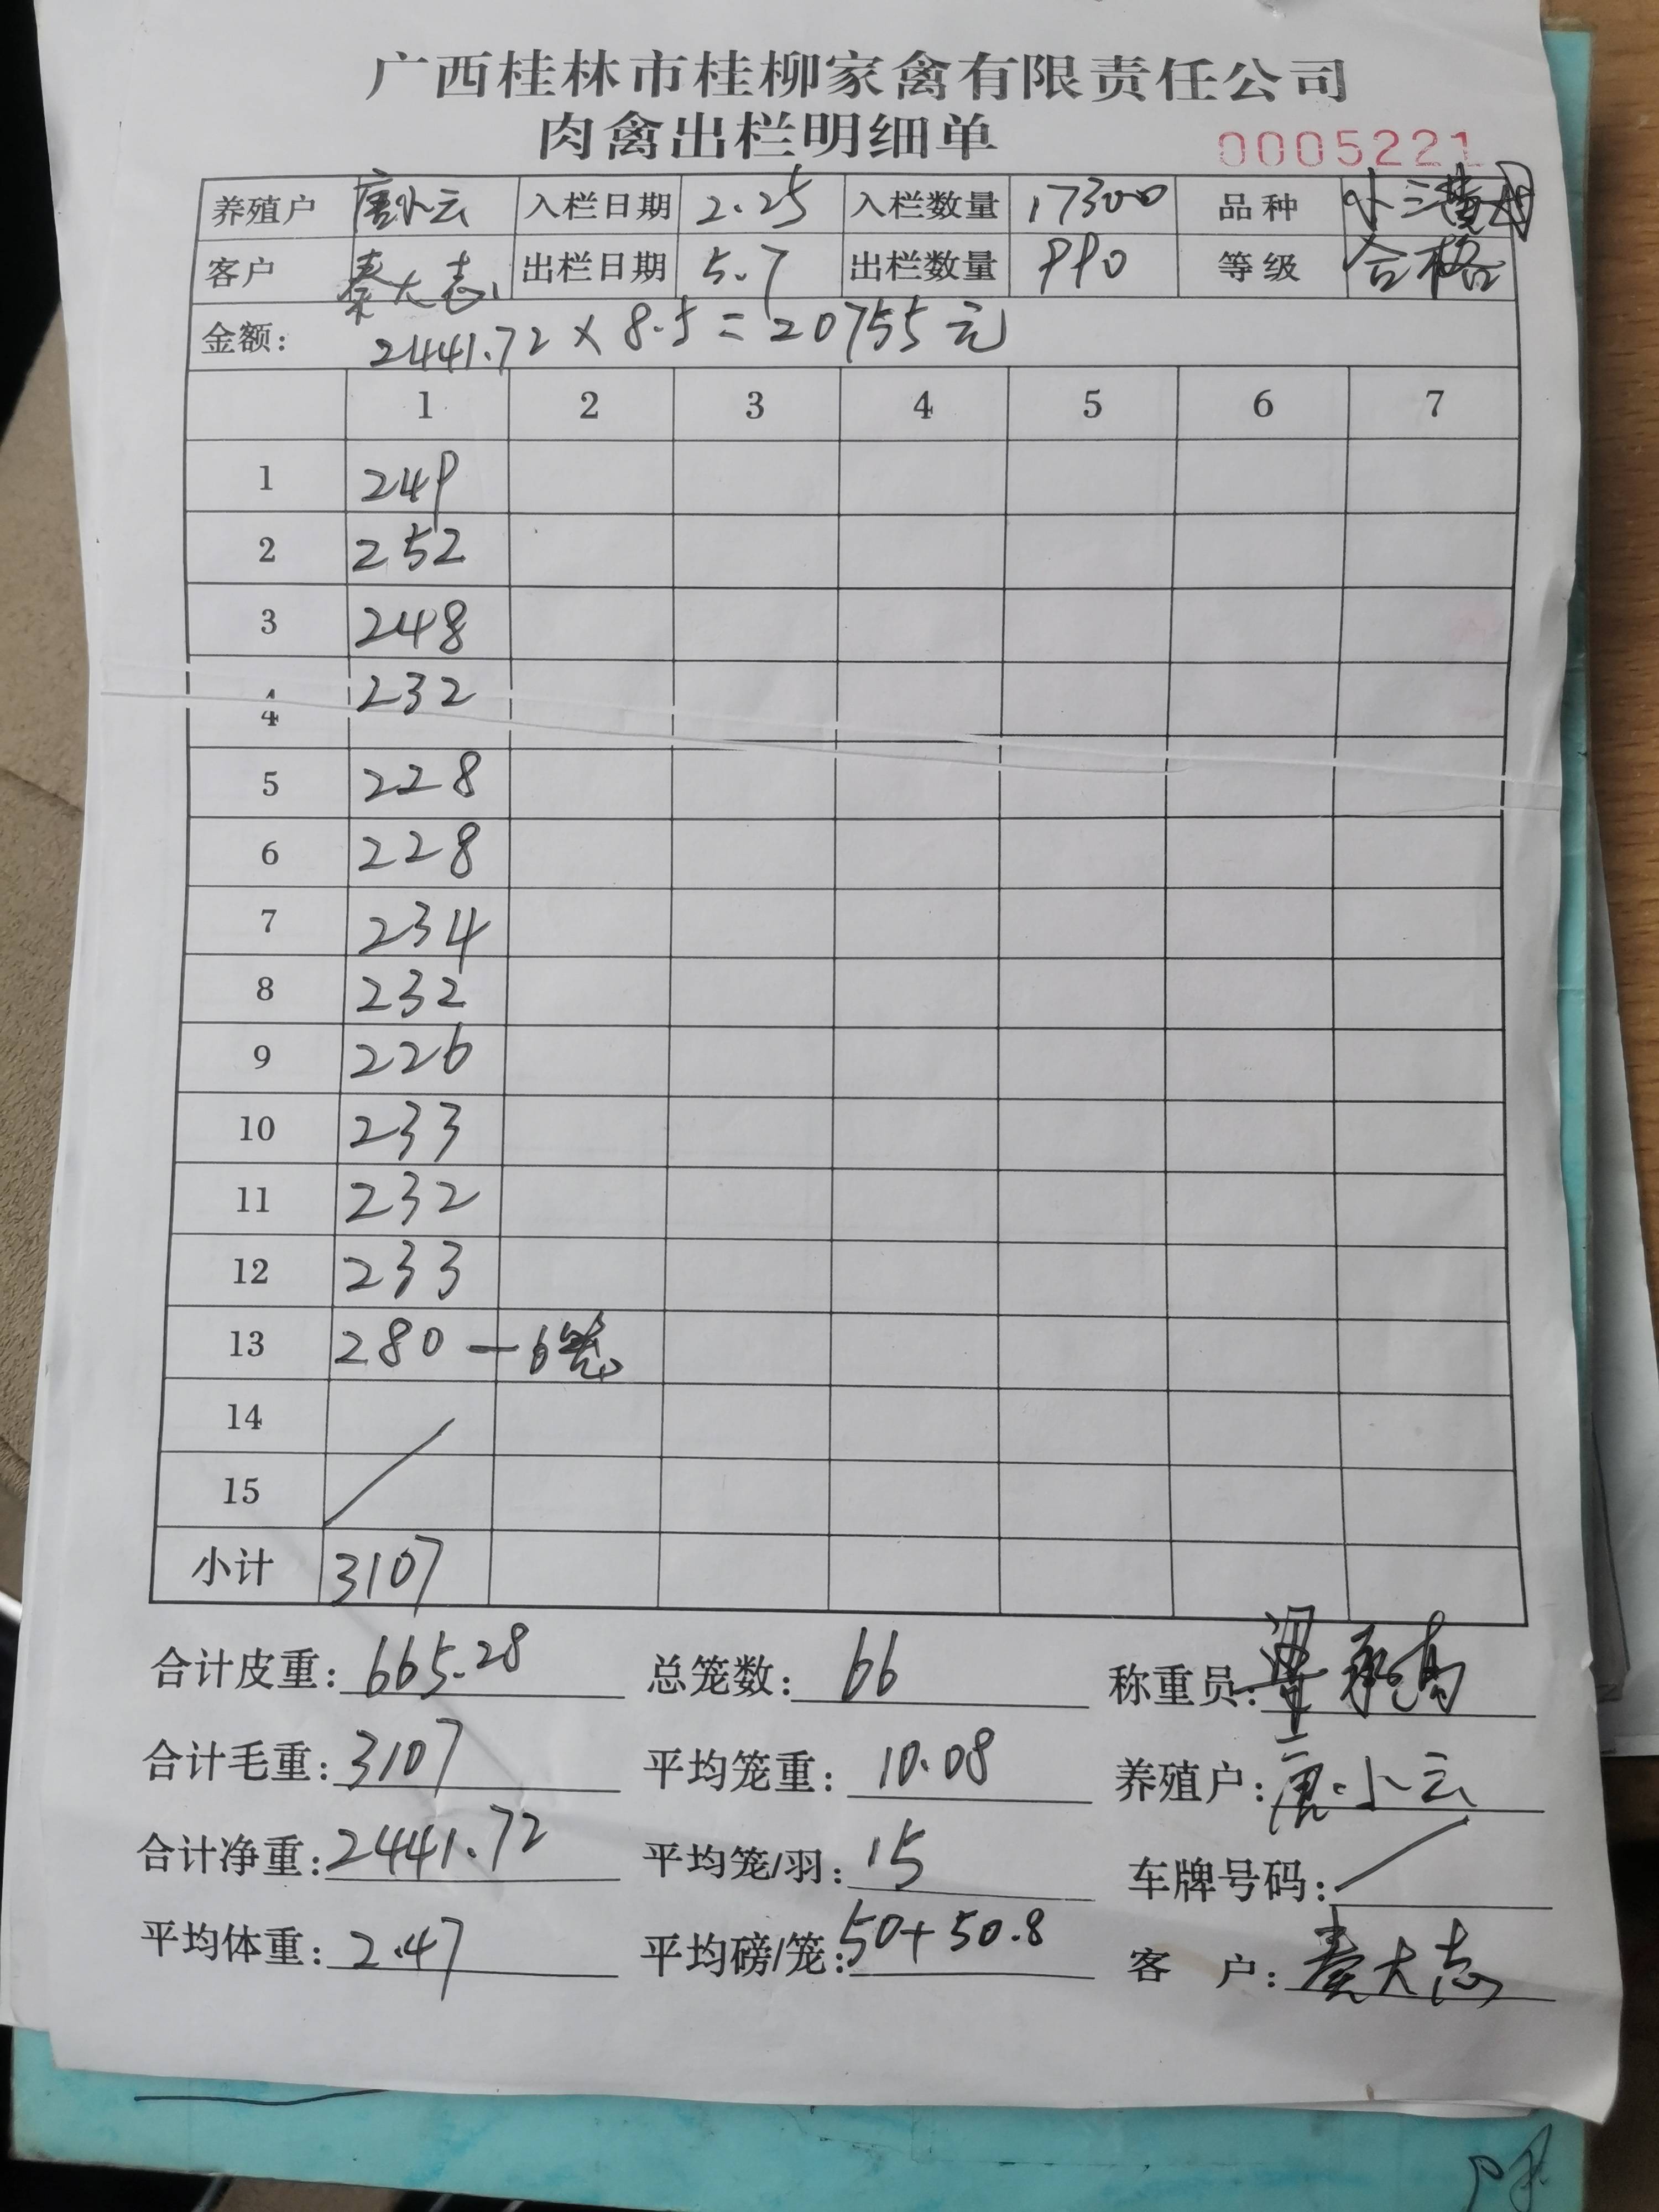 广西桂林市桂柳家禽有限责任公司
肉禽出栏明细单
0005221
养殖户 唐小云 入栏日期 2.25 入栏数量 17300 品种 小三黄
客户 秦大志 出栏日期 5.7 出栏数量 990 等级 合格
金额: 2441.72×8.5=20755元
1 2 3 4 5 6 7
1 249
2 252
3 248
4 232
5 228
6 228
7 234
8 232
9 226
10 233
11 232
12 233
13 280 — 6笼
14
15
小计 3107
合计皮重: 665.28 总笼数: 66 称重员:
合计毛重: 3107 平均笼重: 10.08 养殖户: 唐小云
合计净重: 2441.72 平均笼/羽: 15 车牌号码:
平均体重: 2.47 平均磅/笼: 50+50.8 客 户: 秦大志